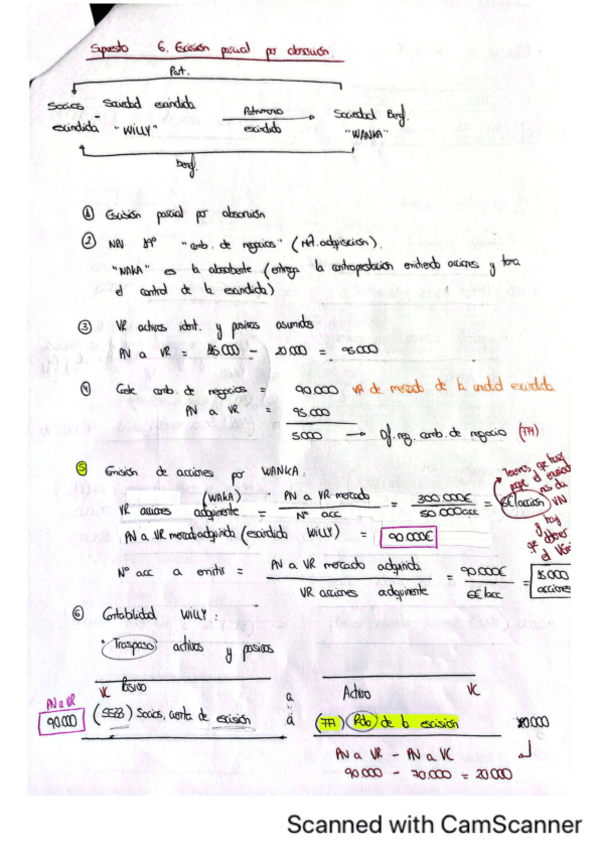 Supuesto 6. Escisión parcial por absorción.
Part.
Socios Sociedad escindida Patrimonio Sociedad Benf.
escindida "WILLY" escindido "WANKA"
benf.
① Escisión parcial por absorción
② NRV 19º "comb. de negocios" (Mº. adquisición).
"WAKA" es la absorbente (entrega la contraprestación emitiendo acciones y toma
el control de la escindida)
③ VR activos ident. y pasivos asumidos
PN a VR = 000 - 20 000 = 95000
④ Coste comb. de negocios = 90.000 VR de mercado de la unidad escindida
PN a VR = 95.000
5000 → Dif. neg. comb. de negocio (774)
⑤ Emisión de acciones por WANKA.
VR acciones (WAKA) adquirente = PN a VR mercado / Nº acc = 300 000€ / 50 000 acc = 6€/acción
PN a VR mercado adquirida (escindida WILLY) = 90 000€
Nº acc a emitir = PN a VR mercado adquirida / VR acciones adquirente = 90 000€ / 6€/acc = 15.000 acciones
⑥ Contabilidad WILLY:
· Traspaso activos y pasivos
VC Pasivo a Activo VC
PN a VR
90.000 (5523) Socios, cuenta de escisión a (774) Rdo de la escisión 20000
PN a VR - PN a VC
90 000 - 70.000 = 20 000
Scanned with CamScanner